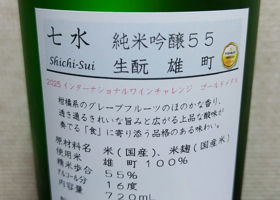 七水 純米吟醸55
Shichi-Sui 生酛 雄町
2025インターナショナルワインチャレンジ ゴールドメダル
柑橘系のグレープフルーツのほのかな香り、
透き通るきれいな旨みと広がる上品な酸味が
奏でる「食」に寄り添う品格のある味わい。
原材料名 米(国産)、米麹(国産米)
使用米 雄町100%
精米歩合 55%
アルコール分 16度
内容量 720ml